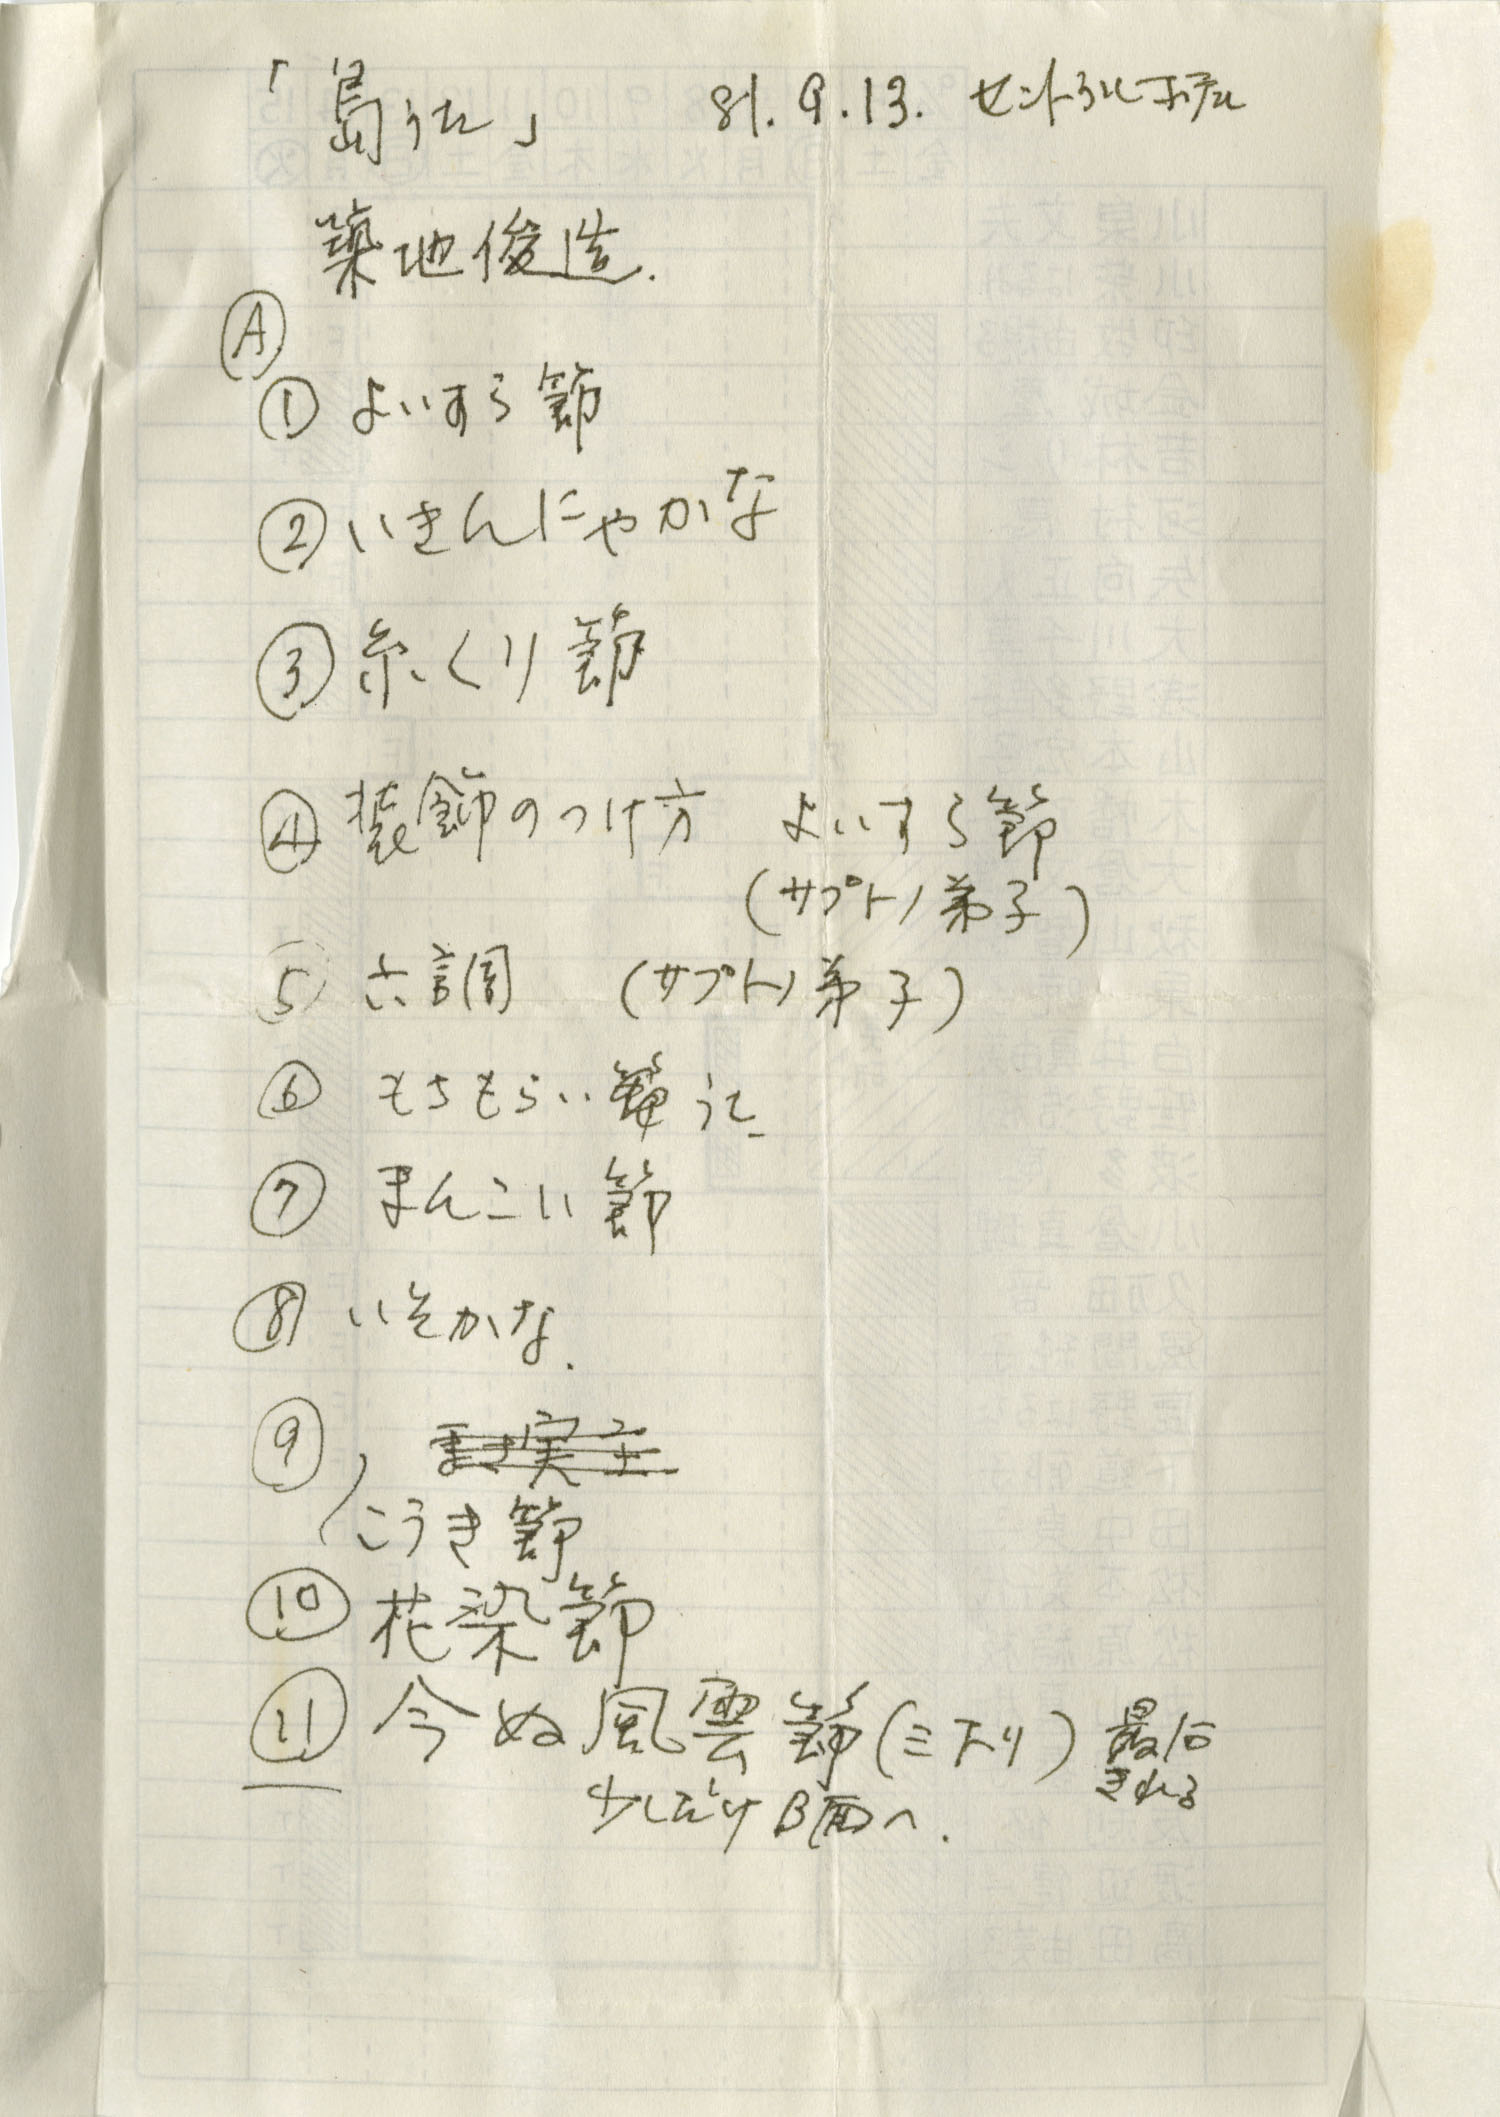 「島うた」 81.9.13. セントラルホテル
築地俊造.
Ⓐ
① よいすら節
② いきんにゃかな
③ 糸くり節
④ 装飾のつけ方 よいすら節
(サプトノ弟子)
⑤ 六調 (サプトノ弟子)
⑥ もちもらい うた
⑦ まんこい節
⑧ いそかな.
⑨ 実主
こうき節
⑩ 花染節
⑪ 今ぬ風雲節(三下り) 最后
きれる
少しだけB面へ.